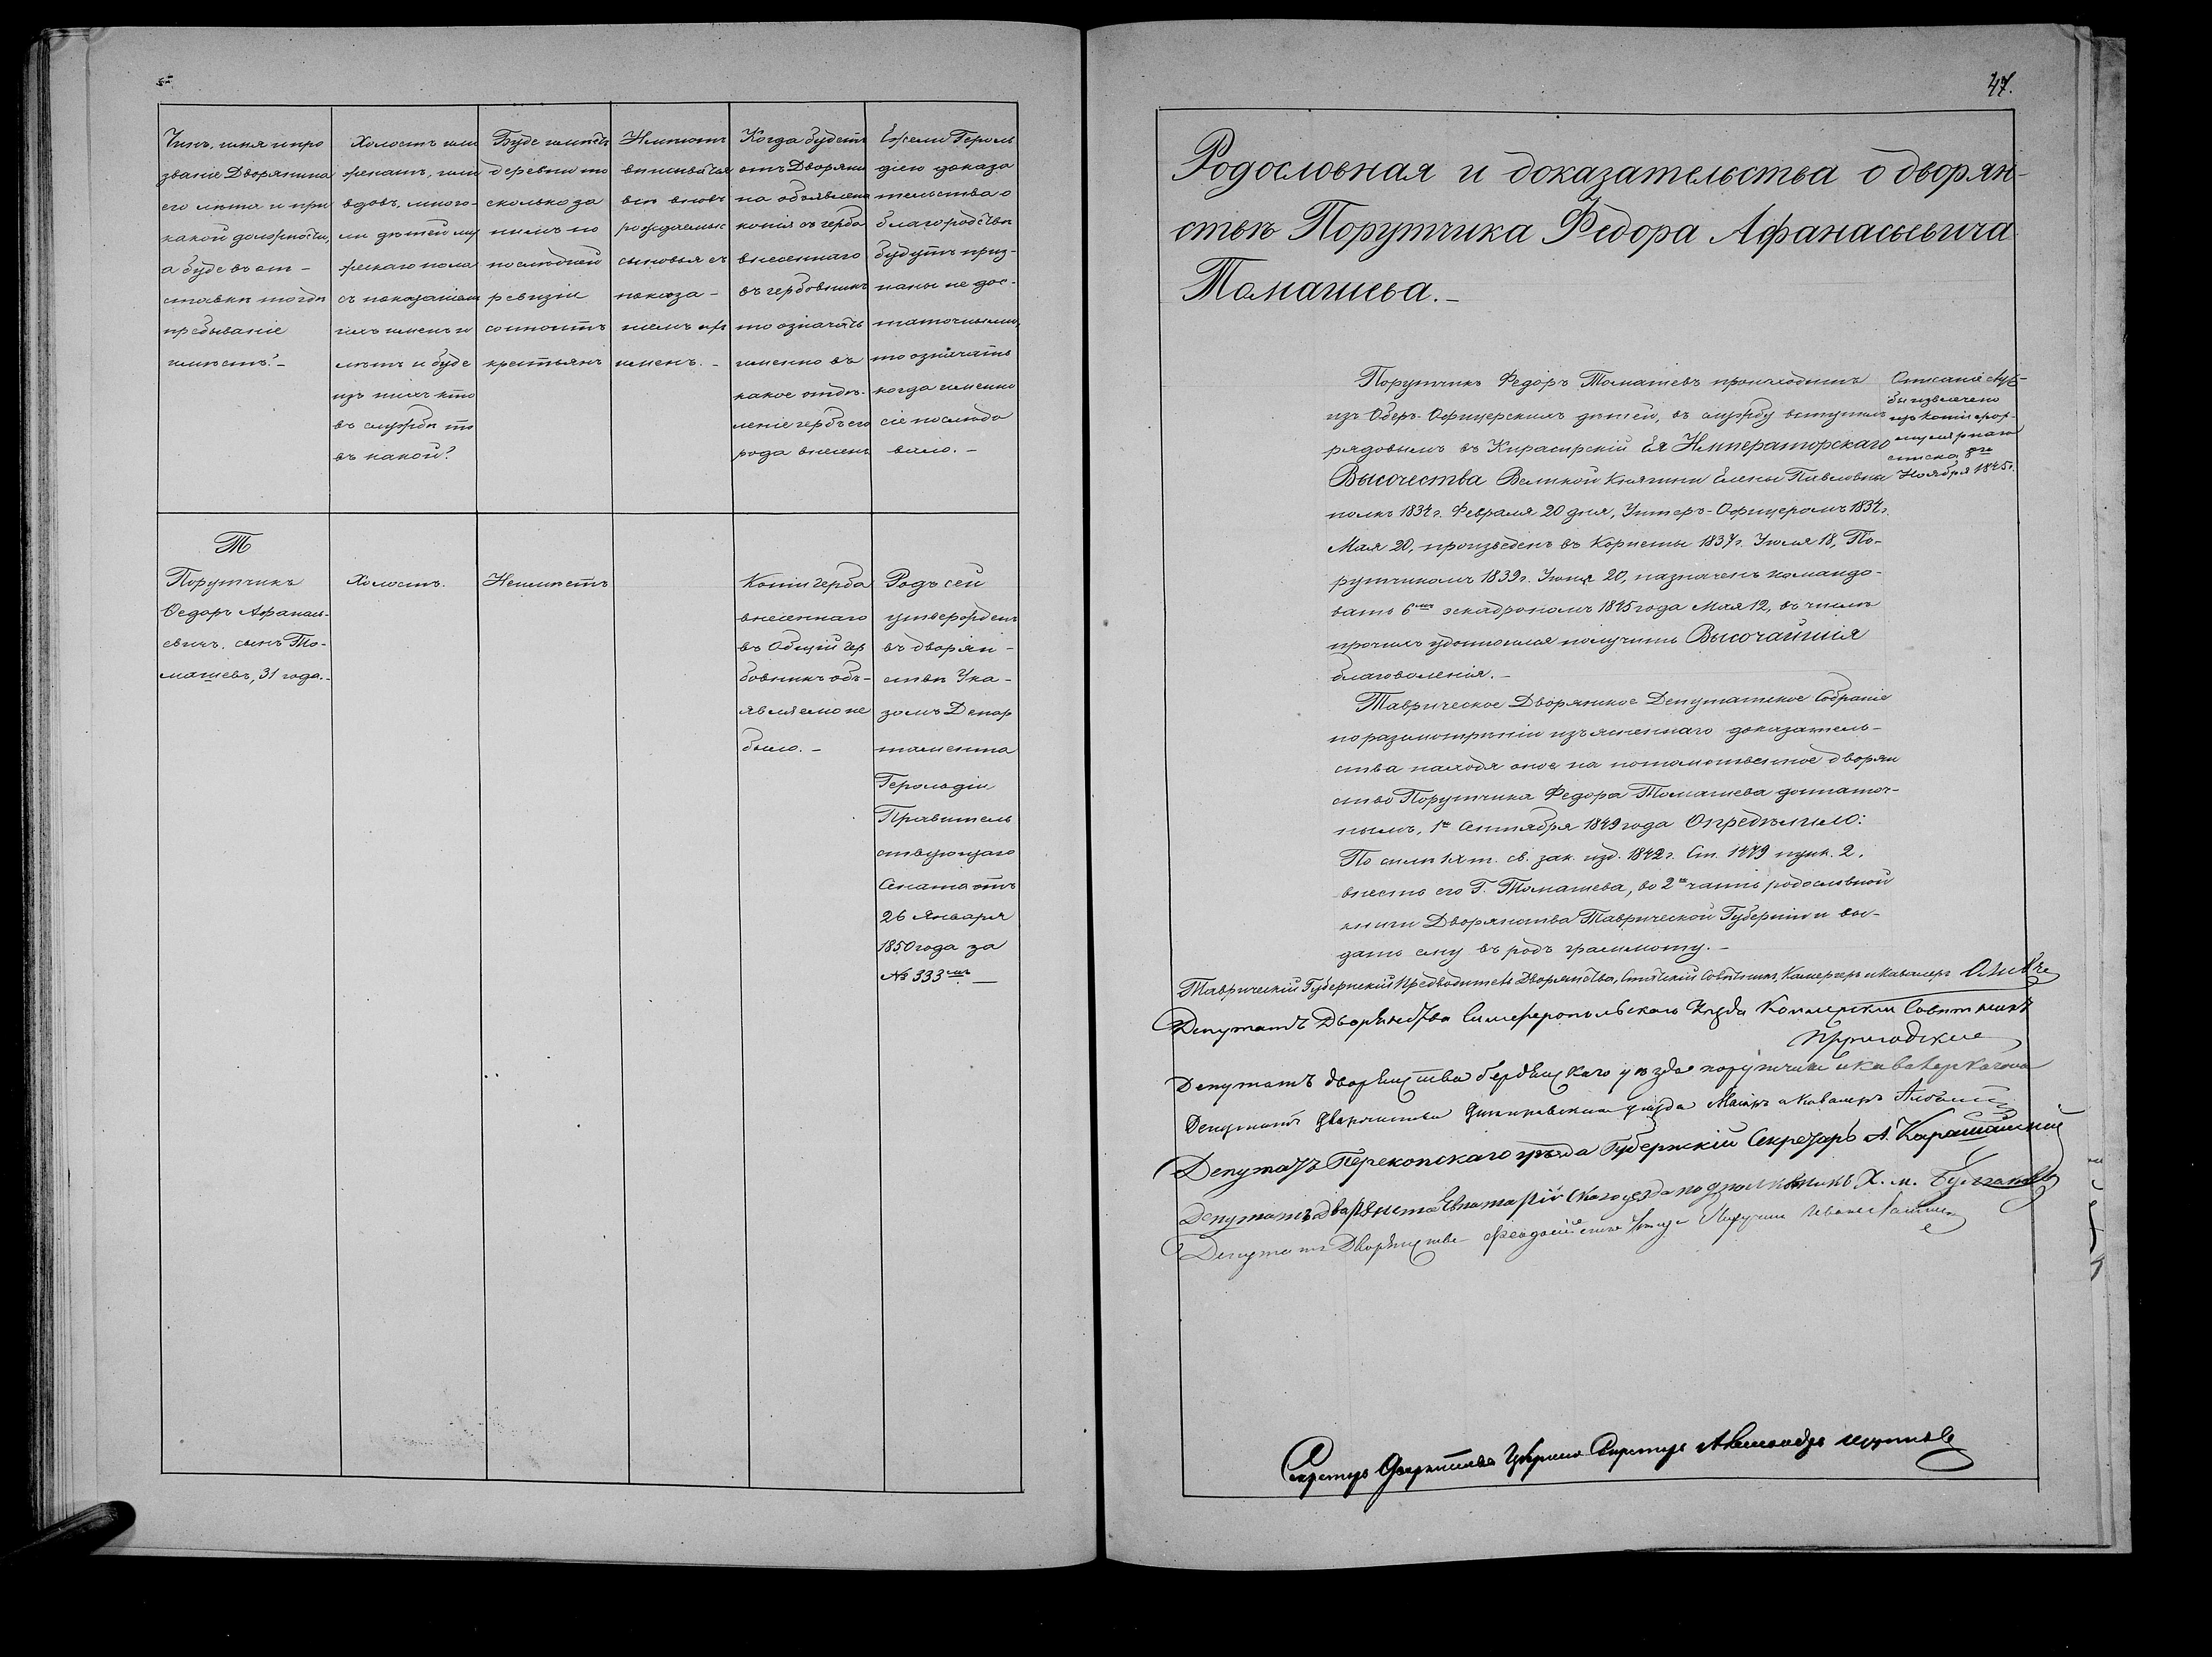 Чинъ, имя и про
званіе Дворянина
его лѣта и при
какой должности,
а буде въ от-
ставкѣ то гдѣ
пребываніе
имѣетъ?-
Холостъ или
женатъ, или
вдовъ, много-
ли дѣтей му
жескаго пола
съ показаніемъ
ихъ именъ и
лѣтъ и буде
изъ нихъ кто
въ службѣ то
въ какой?
Буде имѣетъ
деревни то
сколько за
нимъ по
послѣдней
ревизіи
состоитъ
крестьянъ
вписываются
всѣ вновь
рождаемые
сыновья съ
показа-
ніемъ ихъ
именъ.-
Когда будетъ
отъ Дворяни
на объявлена
копія съ герба
внесеннаго
въ гербовникъ
то означать
именно въ
какое отдѣ-
леніе гербъ его
рода внесенъ
Ежели Героль
діею доказа
тельства о
благородствѣ
будутъ приз-
наны не дос-
таточными,
то означать
когда именно
сіе послѣдо
вало.-
Т
Порутчикъ
Ѳедоръ Афанась-
евичъ сынъ То-
машевъ, 31 года.-
Холостъ.
Неимѣетъ
Копіи герба
внесеннаго
въ Общій гер
бовникъ объ-
являемо не
было.-
Родъ сей
утвержденъ
въ дворян-
ствѣ Ука-
зомъ Депар
тамента
Герольдіи
Правитель
ствующаго
Сената отъ
26 Января
1850 года за
№ 333мъ.-
47.
Родословная и доказательства о дворян-
ствѣ Порутчика Федора Афанасьевича
Томашева.-
Порутчикъ Федоръ Томашевъ происходитъ
изъ Оберъ-Офицерскихъ дѣтей, въ службу вступилъ
рядовымъ въ Кирасирскій Ея Императорскаго
Высочества Великой Княгини Елены Павловны
полкъ 1834 г. Февраля 20 дня, Унтеръ-Офицеромъ 1834 г.
Мая 20, произведенъ въ Корнеты 1837 г. Іюля 18, По-
рутчикомъ 1839 г. Іюня 20, назначенъ командо-
вать 6мъ эскадрономъ 1845 года Мая 12, въ числѣ
прочихъ удостоился получить Высочайшія
благоволенія.-
Описаніе служ-
бы извлечено
изъ копіи фор-
мулярнаго
списка
Ноября 1845 г.
Таврическое Дворянское Депутатское Собраніе
по разсмотрѣніи изъясненнаго доказатель-
ства находя оное на потомственное дворян
ство Порутчика Федора Томашева достаточ-
нымъ, 1го Сентября 1849 года Опредѣлило:
По силѣ IX т. св. зак. изд. 1842 г. Ст. 1479 пунк. 2,
внесть его Г. Томашева, во 2ю часть родословной
книги Дворянства Таврической Губерніи и вы-
дать ему въ родъ граммоту.-
Таврическій Губернскій Предводитель Дворянства, Статскій Совѣтникъ, Камергеръ и Кавалеръ Оливъ
Депутатъ Дворянства Симферопольскаго Уѣзда Коллежскій Совѣтникъ
Депутатъ дворянства бердянскаго уѣзда порутчикъ и кавалеръ
Депутатъ Дворянства Днѣпровскаго уѣзда Маіоръ и Кавалеръ
Депутатъ Перекопскаго уѣзда Губернскій Секретарь А. Карашайскій
Депутатъ Дворянства Евпаторійскаго уезда подполковникъ Х. м. Булгаковъ
Депутатъ Дворянства Феодосійскаго Порутчикъ
Секретарь Дворянства Губернскій Секретарь